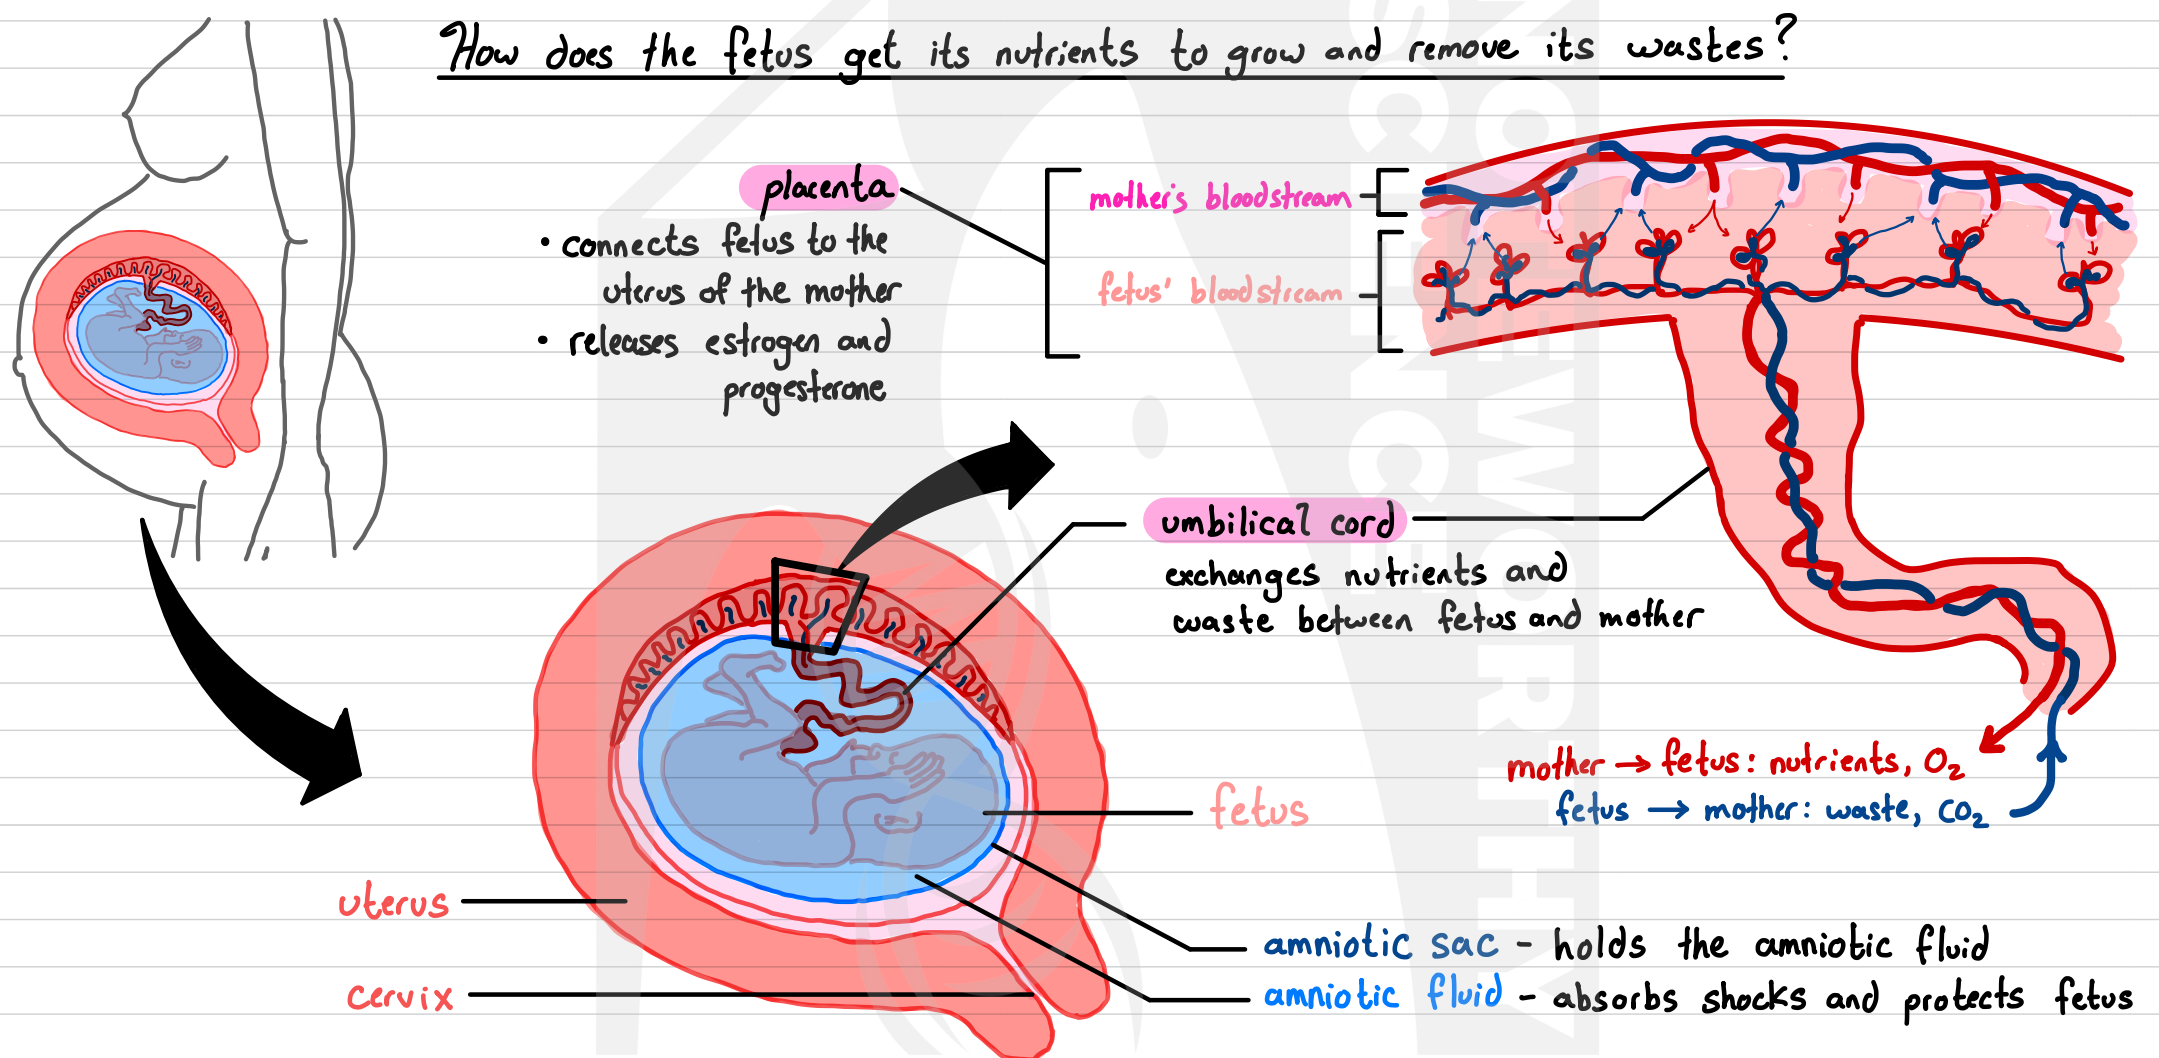 How does the fetus get its nutrients to grow and remove its wastes?
placenta
• connects fetus to the
uterus of the mother
• releases estrogen and
progesterone
mother's bloodstream
fetus' bloodstream
umbilical cord
exchanges nutrients and
waste between fetus and mother
mother → fetus: nutrients, O₂
fetus → mother: waste, CO₂
fetus
uterus
cervix
amniotic sac - holds the amniotic fluid
amniotic fluid - absorbs shocks and protects fetus